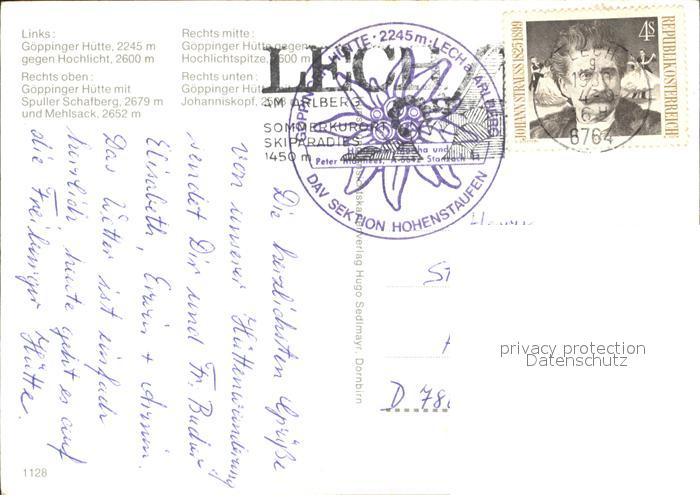 Links :
Göppinger Hütte, 2245 m
gegen Hochlicht, 2600 m
Rechts oben :
Göppinger Hütte mit
Spuller Schafberg, 2679 m
und Mehlsack, 2652 m
Rechts mitte :
Göppinger Hütte gegen
Hochlichtspitze, 2600 m
Rechts unten :
Göppinger Hütte
Johanniskopf, 25
LECH
AM ARLBERG
SOMMERKURORT
SKIPARADIES
1450 m
GÖPPINGER HÜTTE · 2245m · LECH a. ARLBERG
und
Peter
DAV SEKTION HOHENSTAUFEN
4S
REPUBLIK ÖSTERREICH
JOHANN STRAUSS 1825-1899
LECH
6764
Die herzlichsten Grüße
von unserer Hüttenwanderung
sendet Dir und Fr.
Elisabeth, Erwin + Armin.
Das Wetter ist einfach
herrlich heute geht es auf
die Freiburger Hütte.
Verlag Hugo Sedlmayr, Dornbirn
D 78
privacy protection
Datenschutz
1128